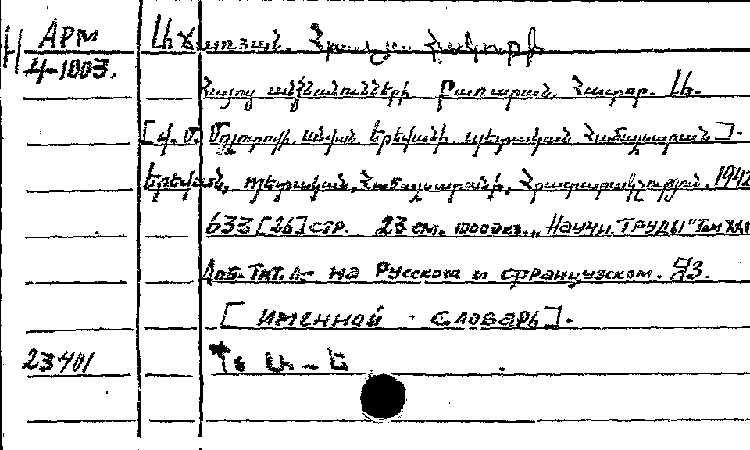 АРМ Աճառյան. Հրաչյա Հակոբի
4-1003.
Հայոց անձնանունների բառարան. Հատոր. Ա.
[Վ. Մ. Մոլոտովի անվան Երևանի պետական համալսարան].
Երևան, պետական. համալսարանի. հրատարակչություն. 1942
633 [26] стр. 23 см. 1000 экз., "Научн. труды" Том
Доб. тит. л. на русском и французском. Яз.
[ именной словарь].
23401 Ա - Ե